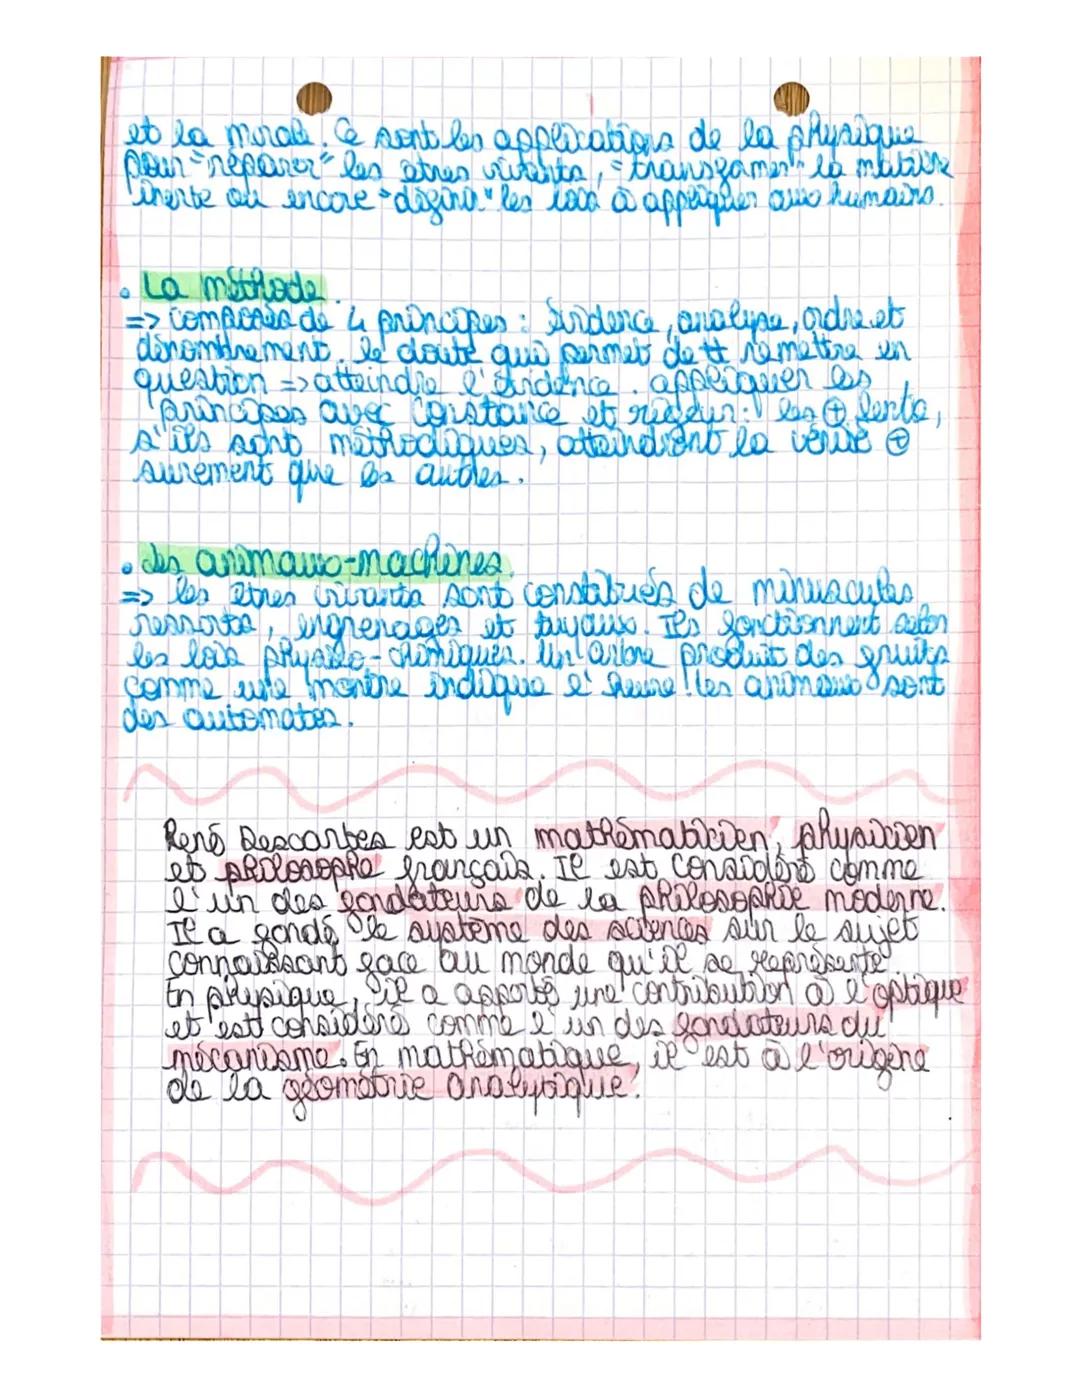 et la morale. Ce sont les applications de la physique
pour "réparer" les êtres vivants, "transformer" la matière
inerte ou encore "définir" les lois à appliquer aux humains.
. La méthode.
=> composée de 4 principes : évidence, analyse, ordre et
dénombrement. le doute qui permet de tt remettre en
question => atteindre l'évidence. appliquer les
principes avec constance et rigueur : les ⊕ lents,
s'ils sont méthodiques, atteindront la vérité ⊕
surement que les autres.
. Les animaux-machines.
=> les êtres vivants sont constitués de minuscules
ressorts, engrenages et tuyaux. Ils fonctionnent selon
les lois physico-chimiques. Un arbre produit des fruits
comme une montre indique l'heure ! les animaux sont
des automates.
René Descartes est un mathématicien, physicien
et philosophe français. Il est considéré comme
l'un des fondateurs de la philosophie moderne.
Il a fondé le système des sciences sur le sujet
connaissant face au monde qu'il se représente
En physique, il a apporté une contribution à l'optique
et est considéré comme l'un des fondateurs du
mécanisme. En mathématique, il est à l'origine
de la géométrie analytique.